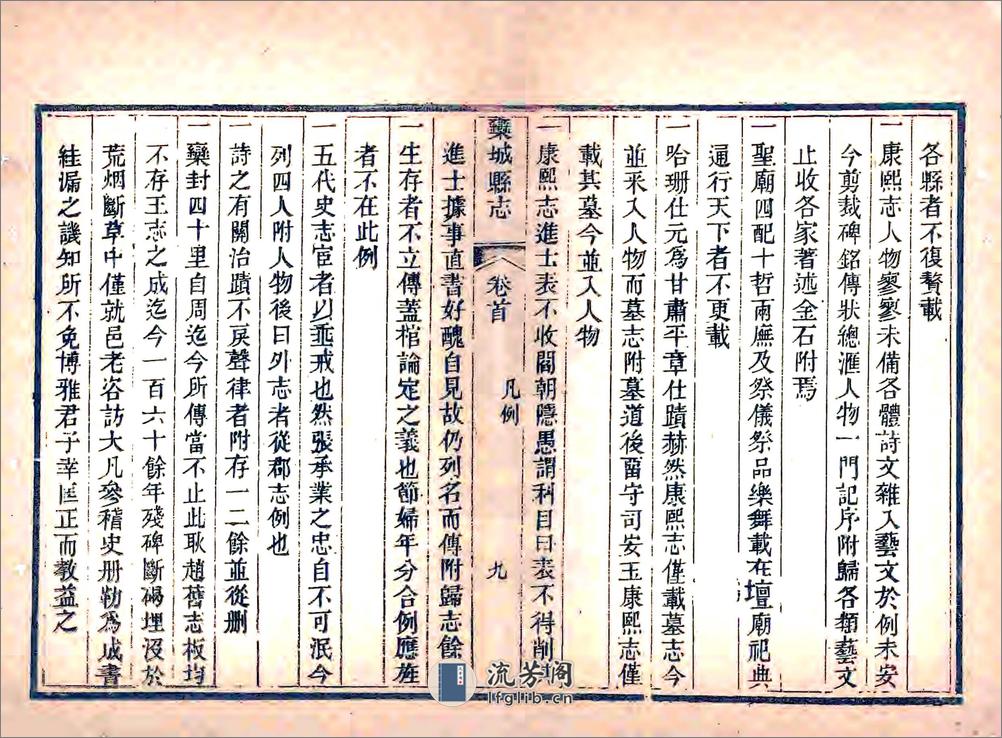 各縣者不復贅載
一康熙志人物寥寥未備各體詩文雜入藝文於例未安
今剪裁碑銘傳狀總滙人物一門記序附歸各類藝文
止收各家著述金石附焉
一聖廟四配十哲兩廡及祭儀祭品樂舞載在壇廟祀典
通行天下者不更載
一哈珊仕元爲甘肅平章仕蹟赫然康熙志僅載墓志今
並采入人物而墓志附墓道後畱守司安玉康熙志僅
載其墓今並入人物
一康熙志進士表不收閻朝隱愚謂科目曰表不得削
欒城縣志
卷首
凡例
九
進士據事直書好醜自見故仍列名而傳附歸志餘
一生存者不立傳蓋棺論定之義也節婦年分合例應旌
者不在此例
一五代史志宦者以垂戒也然張承業之忠自不可泯今
列四人附人物後曰外志者從郡志例也
一詩之有關治蹟不戾聲律者附存一二餘並從刪
一欒封四十里自周迄今所傳當不止此耿趙舊志板均
不存王志之成迄今一百六十餘年殘碑斷碣埋沒於
荒烟斷草中僅就邑老咨訪大凡參稽史册勒爲成書
絓漏之譏知所不免博雅君子幸匡正而敎益之
流芳閣
lfglib.cn